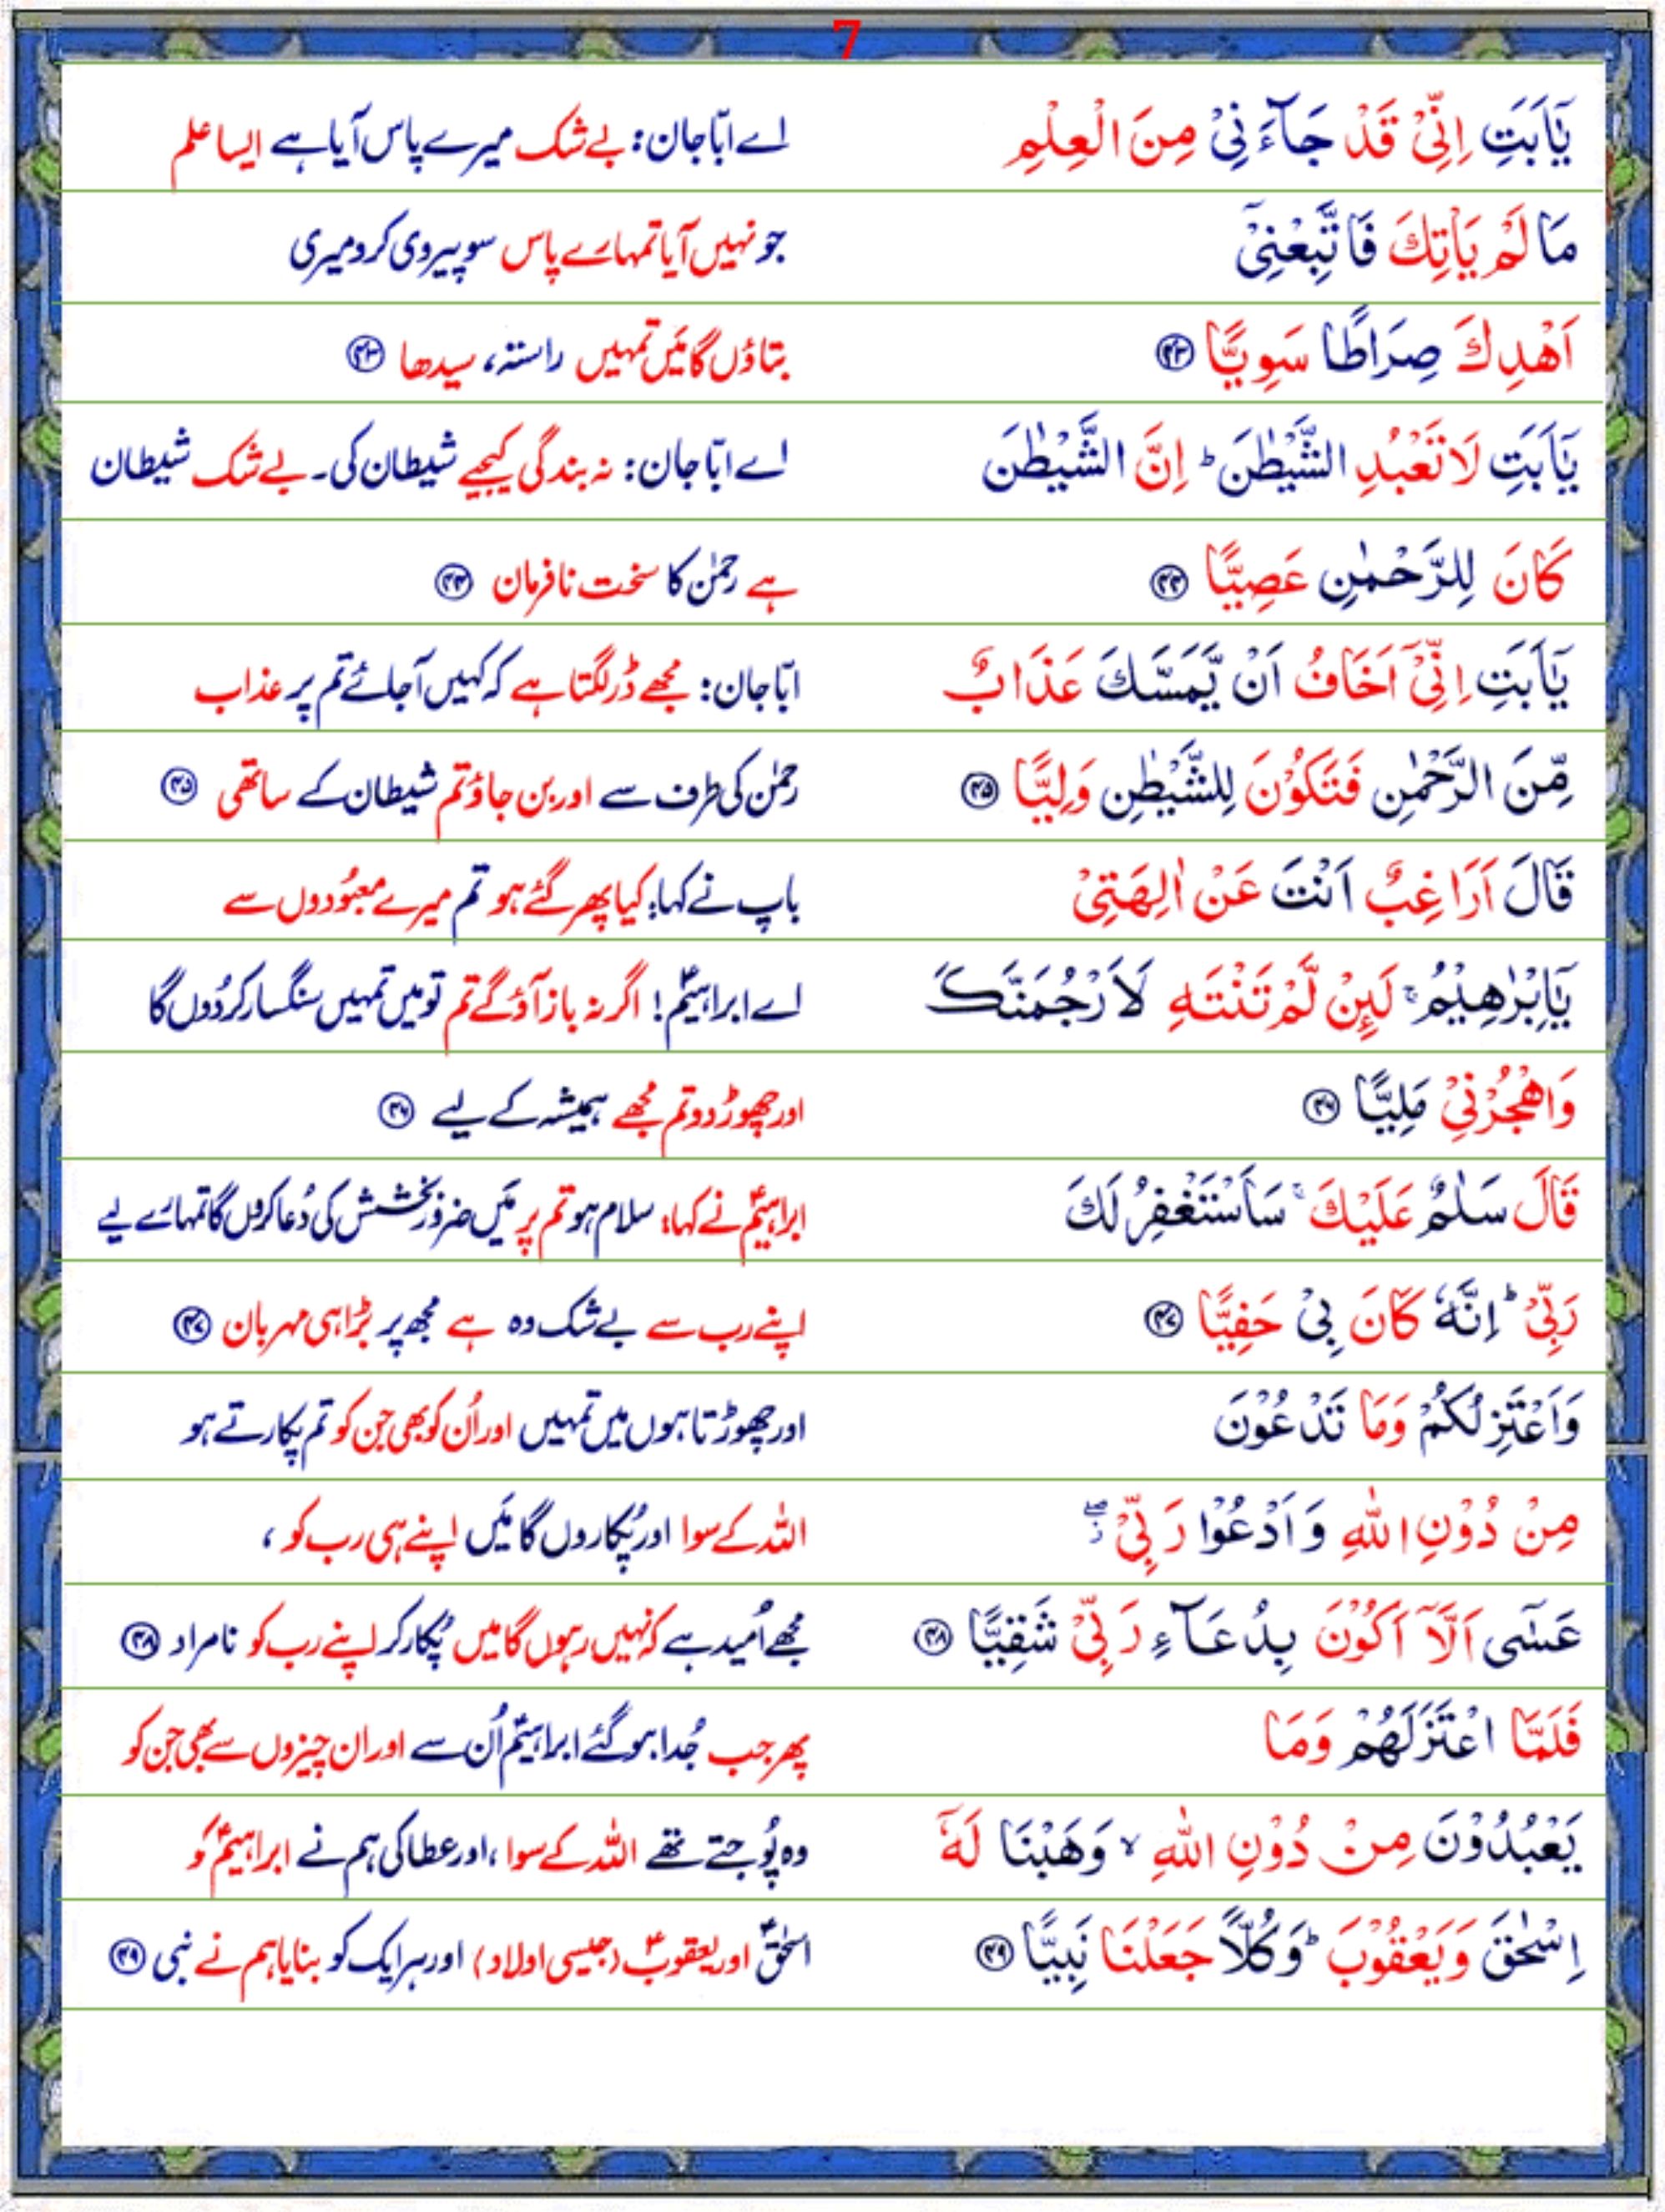 7
يٰۤاَبَتِ اِنِّىْ قَدْ جَآءَنِىْ مِنَ الْعِلْمِ اے ابّا جان: بے شک میرے پاس آیا ہے ایسا علم
مَا لَمْ يَاْتِكَ فَاتَّبِعْنِىْۤ جو نہیں آیا تمہارے پاس سو پیروی کرو میری
اَهْدِكَ صِرَاطًا سَوِيًّا ﴿۴۳﴾ بتاؤں گا مَیں تمہیں راستہ، سیدھا ﴿۴۳﴾
يٰۤاَبَتِ لَا تَعْبُدِ الشَّيْطٰنَ ؕ اِنَّ الشَّيْطٰنَ اے ابّا جان: نہ بندگی کیجیے شیطان کی۔ بے شک شیطان
كَانَ لِلرَّحْمٰنِ عَصِيًّا ﴿۴۴﴾ ہے رحمٰن کا سخت نافرمان ﴿۴۴﴾
يٰۤاَبَتِ اِنِّىْۤ اَخَافُ اَنْ يَّمَسَّكَ عَذَابٌ ابّا جان: مجھے ڈر لگتا ہے کہ کہیں آجائے تم پر عذاب
مِّنَ الرَّحْمٰنِ فَتَكُوْنَ لِلشَّيْطٰنِ وَلِيًّا ﴿۴۵﴾ رحمٰن کی طرف سے اور بن جاؤ تم شیطان کے ساتھی ﴿۴۵﴾
قَالَ اَرَاغِبٌ اَنْتَ عَنْ اٰلِهَتِىْ باپ نے کہا: کیا پھر گئے ہو تم میرے معبُودوں سے
يٰۤاِبْرٰهِيْمُ ۚ لَئِنْ لَّمْ تَنْتَهِ لَاَرْجُمَنَّكَ اے ابراہیمؑ! اگر نہ باز آؤ گے تم تو میں تمہیں سنگسار کردُوں گا
وَاهْجُرْنِىْ مَلِيًّا ﴿۴۶﴾ اور چھوڑ دو تم مجھے ہمیشہ کے لیے ﴿۴۶﴾
قَالَ سَلٰمٌ عَلَيْكَ ۚ سَاَسْتَغْفِرُ لَكَ ابراہیمؑ نے کہا: سلام ہو تم پر مَیں ضرور بخشش کی دُعا کروں گا تمہارے لیے
رَبِّىْ ؕ اِنَّهٗ كَانَ بِىْ حَفِيًّا ﴿۴۷﴾ اپنے رب سے بے شک وہ ہے مجھ پر بڑا ہی مہربان ﴿۴۷﴾
وَاَعْتَزِلُكُمْ وَمَا تَدْعُوْنَ اور چھوڑتا ہوں میں تمہیں اور اُن کو بھی جن کو تم پکارتے ہو
مِنْ دُوْنِ اللّٰهِ وَاَدْعُوْا رَبِّىْ ۖ ز اللہ کے سوا اور پُکاروں گا مَیں اپنے ہی رب کو،
عَسٰٓى اَلَّاۤ اَكُوْنَ بِدُعَآءِ رَبِّىْ شَقِيًّا ﴿۴۸﴾ مجھے اُمید ہے کہ نہیں رہوں گا میں پُکار کر اپنے رب کو نامراد ﴿۴۸﴾
فَلَمَّا اعْتَزَلَهُمْ وَمَا پھر جب جُدا ہو گئے ابراہیمؑ اُن سے اور ان چیزوں سے بھی جن کو
يَعْبُدُوْنَ مِنْ دُوْنِ اللّٰهِ ۙ وَهَبْنَا لَهٗۤ وہ پُوجتے تھے اللہ کے سوا، اور عطا کی ہم نے ابراہیمؑ کو
اِسْحٰقَ وَيَعْقُوْبَ ؕ وَكُلًّا جَعَلْنَا نَبِيًّا ﴿۴۹﴾ اسحٰقؑ اور یعقوبؑ (جیسی اولاد) اور ہر ایک کو بنایا ہم نے نبی ﴿۴۹﴾